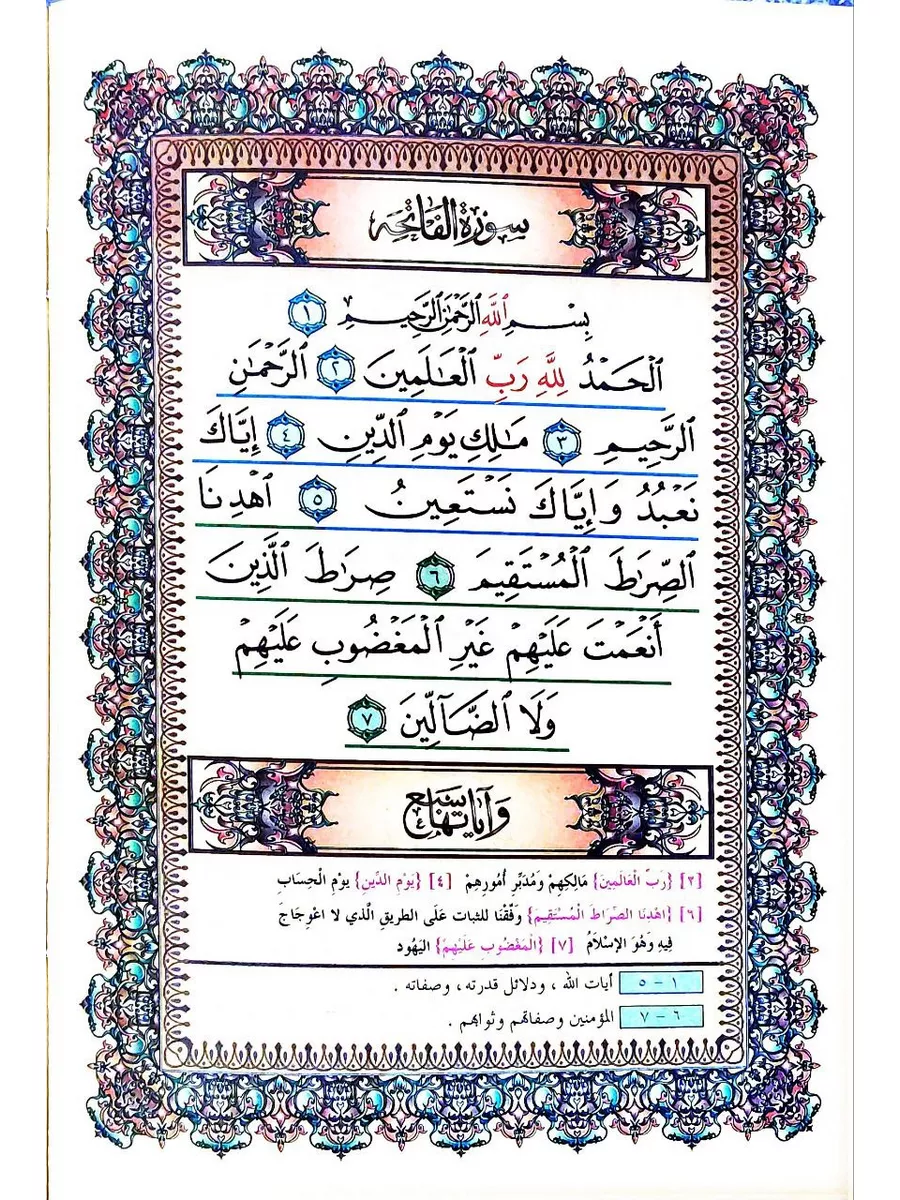 سورة الفاتحة
بِسْمِ ٱللَّهِ ٱلرَّحْمَٰنِ ٱلرَّحِيمِ ١
ٱلْحَمْدُ لِلَّهِ رَبِّ ٱلْعَٰلَمِينَ ٢ ٱلرَّحْمَٰنِ
ٱلرَّحِيمِ ٣ مَٰلِكِ يَوْمِ ٱلدِّينِ ٤ إِيَّاكَ
نَعْبُدُ وَإِيَّاكَ نَسْتَعِينُ ٥ ٱهْدِنَا
ٱلصِّرَٰطَ ٱلْمُسْتَقِيمَ ٦ صِرَٰطَ ٱلَّذِينَ
أَنْعَمْتَ عَلَيْهِمْ غَيْرِ ٱلْمَغْضُوبِ عَلَيْهِمْ
وَلَا ٱلضَّآلِّينَ ٧
وآياتها سبع
[٢] {رَبِّ الْعَالَمِينَ} مَالِكِهِمْ وَمُدَبِّرِ أُمُورِهِمْ [٤] {يَوْمِ الدِّينِ} يومِ الْحِسَابِ
[٦] {اهْدِنَا الصِّرَاطَ الْمُسْتَقِيمَ} وَفِّقْنَا للثبات عَلَى الطريقِ الَّذي لا اعْوِجَاجَ
فِيهِ وَهُوَ الإِسْلَامُ [٧] {الْمَغْضُوبِ عَلَيْهِمْ} اليَهُود
١ – ٥ آيات الله ، ودلائل قدرته ، وصفاته .
٦ – ٧ المؤمنين وصفاتهم وثوابهم .